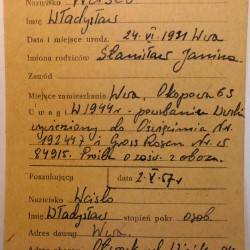 Nazwisko Wcisło
Imię Władysław
Data i miejsce urodz. 24. VI. 1931 Wwa
Imiona rodziców Stanisław Janina
Zawód
Miejsce zamieszkania Wwa, Okopowa 63
Uwagi W 1944 r. powstaniu
wywieziony do Oświęcimia Nr.
192447 a Gross Rosen nr.
84915. Prośba o zaśw. z obozu.
Poszukujący data 2. V. 57 r
Nazwisko Wcisło
Imię Władysław stopień pokr. osob.
Adres dawny Wwa.
Adres